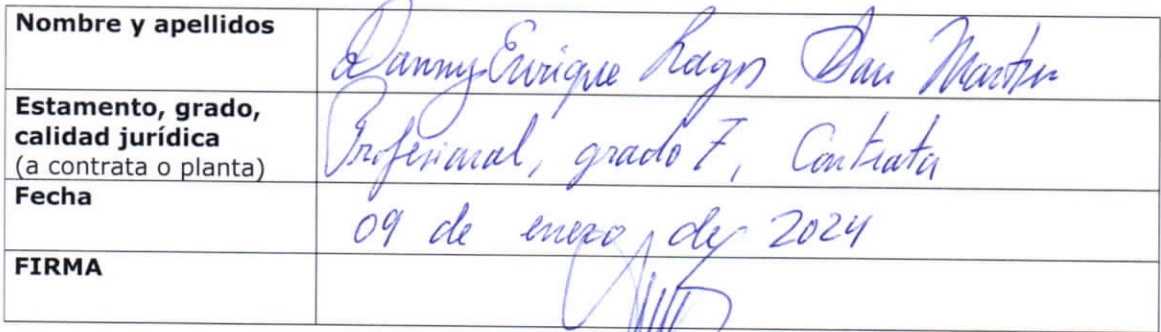 Nombre y apellidos
Danny Enrique Lagos San Martin
Estamento, grado,
calidad jurídica
(a contrata o planta)
Profesional, grado 7, Contrata
Fecha
09 de enero de 2024
FIRMA